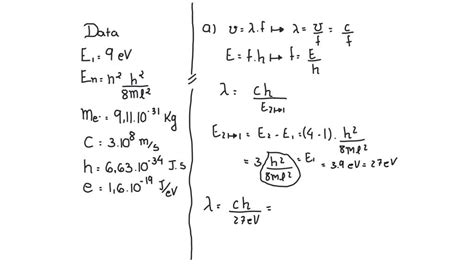 Data
E₁ = 9 eV
En = n² h²/8ml²
me⁻ = 9,11.10⁻³¹ Kg
C = 3.10⁸ m/s
h = 6,63.10⁻³⁴ J.s
e = 1,6.10⁻¹⁹ J/eV
a) v = λ.f ↦ λ = v/f = c/f
E = f.h ↦ f = E/h
λ = ch/E₂↦₁
E₂↦₁ = E₂ - E₁ = (4-1) . h²/8ml²
= 3 h²/8ml² = E₁ = 3.9 eV = 27 eV
λ = ch/27eV =